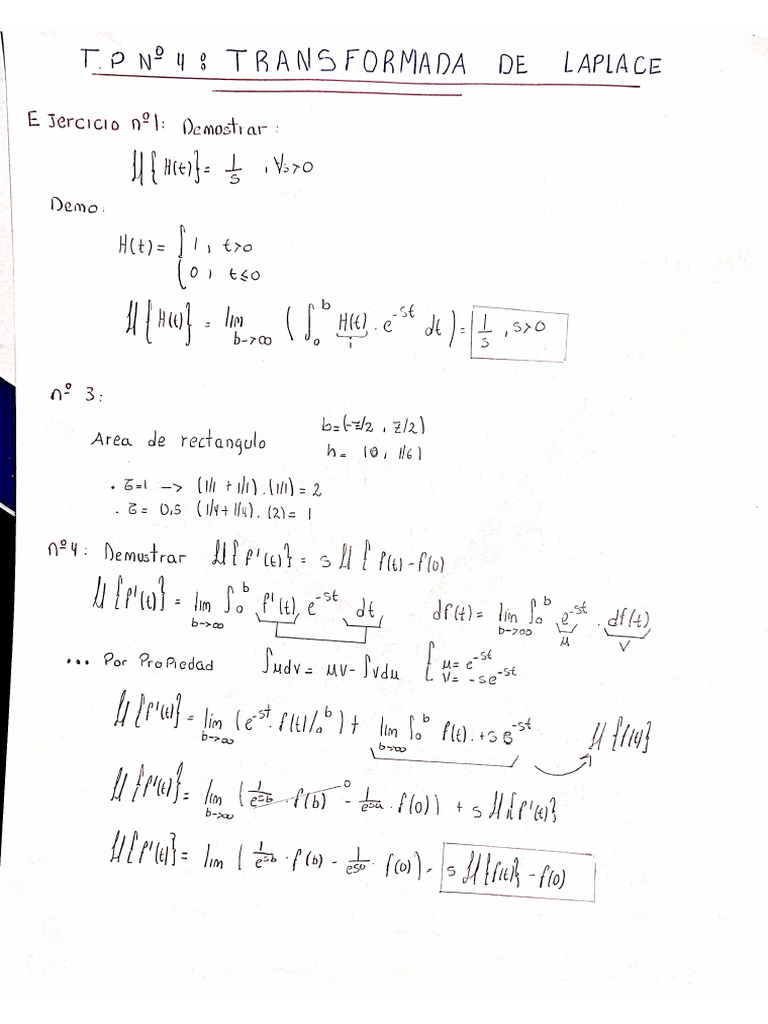 T.P Nº 4: TRANSFORMADA DE LAPLACE
Ejercicio nº1: Demostrar:
ℒ{H(t)} = 1/s , ∀s>0
Demo:
H(t) = { 1, t>0
0, t≤0
ℒ{H(t)} = lim b->∞ (∫₀ᵇ H(t) . e^-st dt) = 1/s , s>0
1
nº 3:
Area de rectangulo b=(-z/2 , z/2)
h= (0, 1/6)
. z=1 -> (1/1 + 1/1) . (1/1) = 2
. z= 0,5 (1/4+1/4) . (2) = 1
nº4: Demostrar ℒ{f'(t)} = s ℒ{ f(t) - f(0)
ℒ{f'(t)} = lim b->∞ ∫₀ᵇ f'(t) e^-st dt df(t) = lim b->∞ ∫₀ᵇ e^-st . df(t)
μ V
... Por Propiedad ∫udv = μv - ∫vdu { μ= e^-st
V= -se^-st
ℒ{f'(t)} = lim b->∞ (e^-st . f(t)/₀ᵇ) + lim b->∞ ∫₀ᵇ f(t) . +s e^-st ℒ{f(t)}
ℒ{f'(t)} = lim b->∞ (1/e^sb . f(b) 0 - 1/e^sa . f(0)) + s ℒ{f'(t)}
ℒ{f'(t)} = lim ( 1/e^sb . f(b) - 1/e^s0 . f(0)) = s ℒ{f(t)} - f(0)